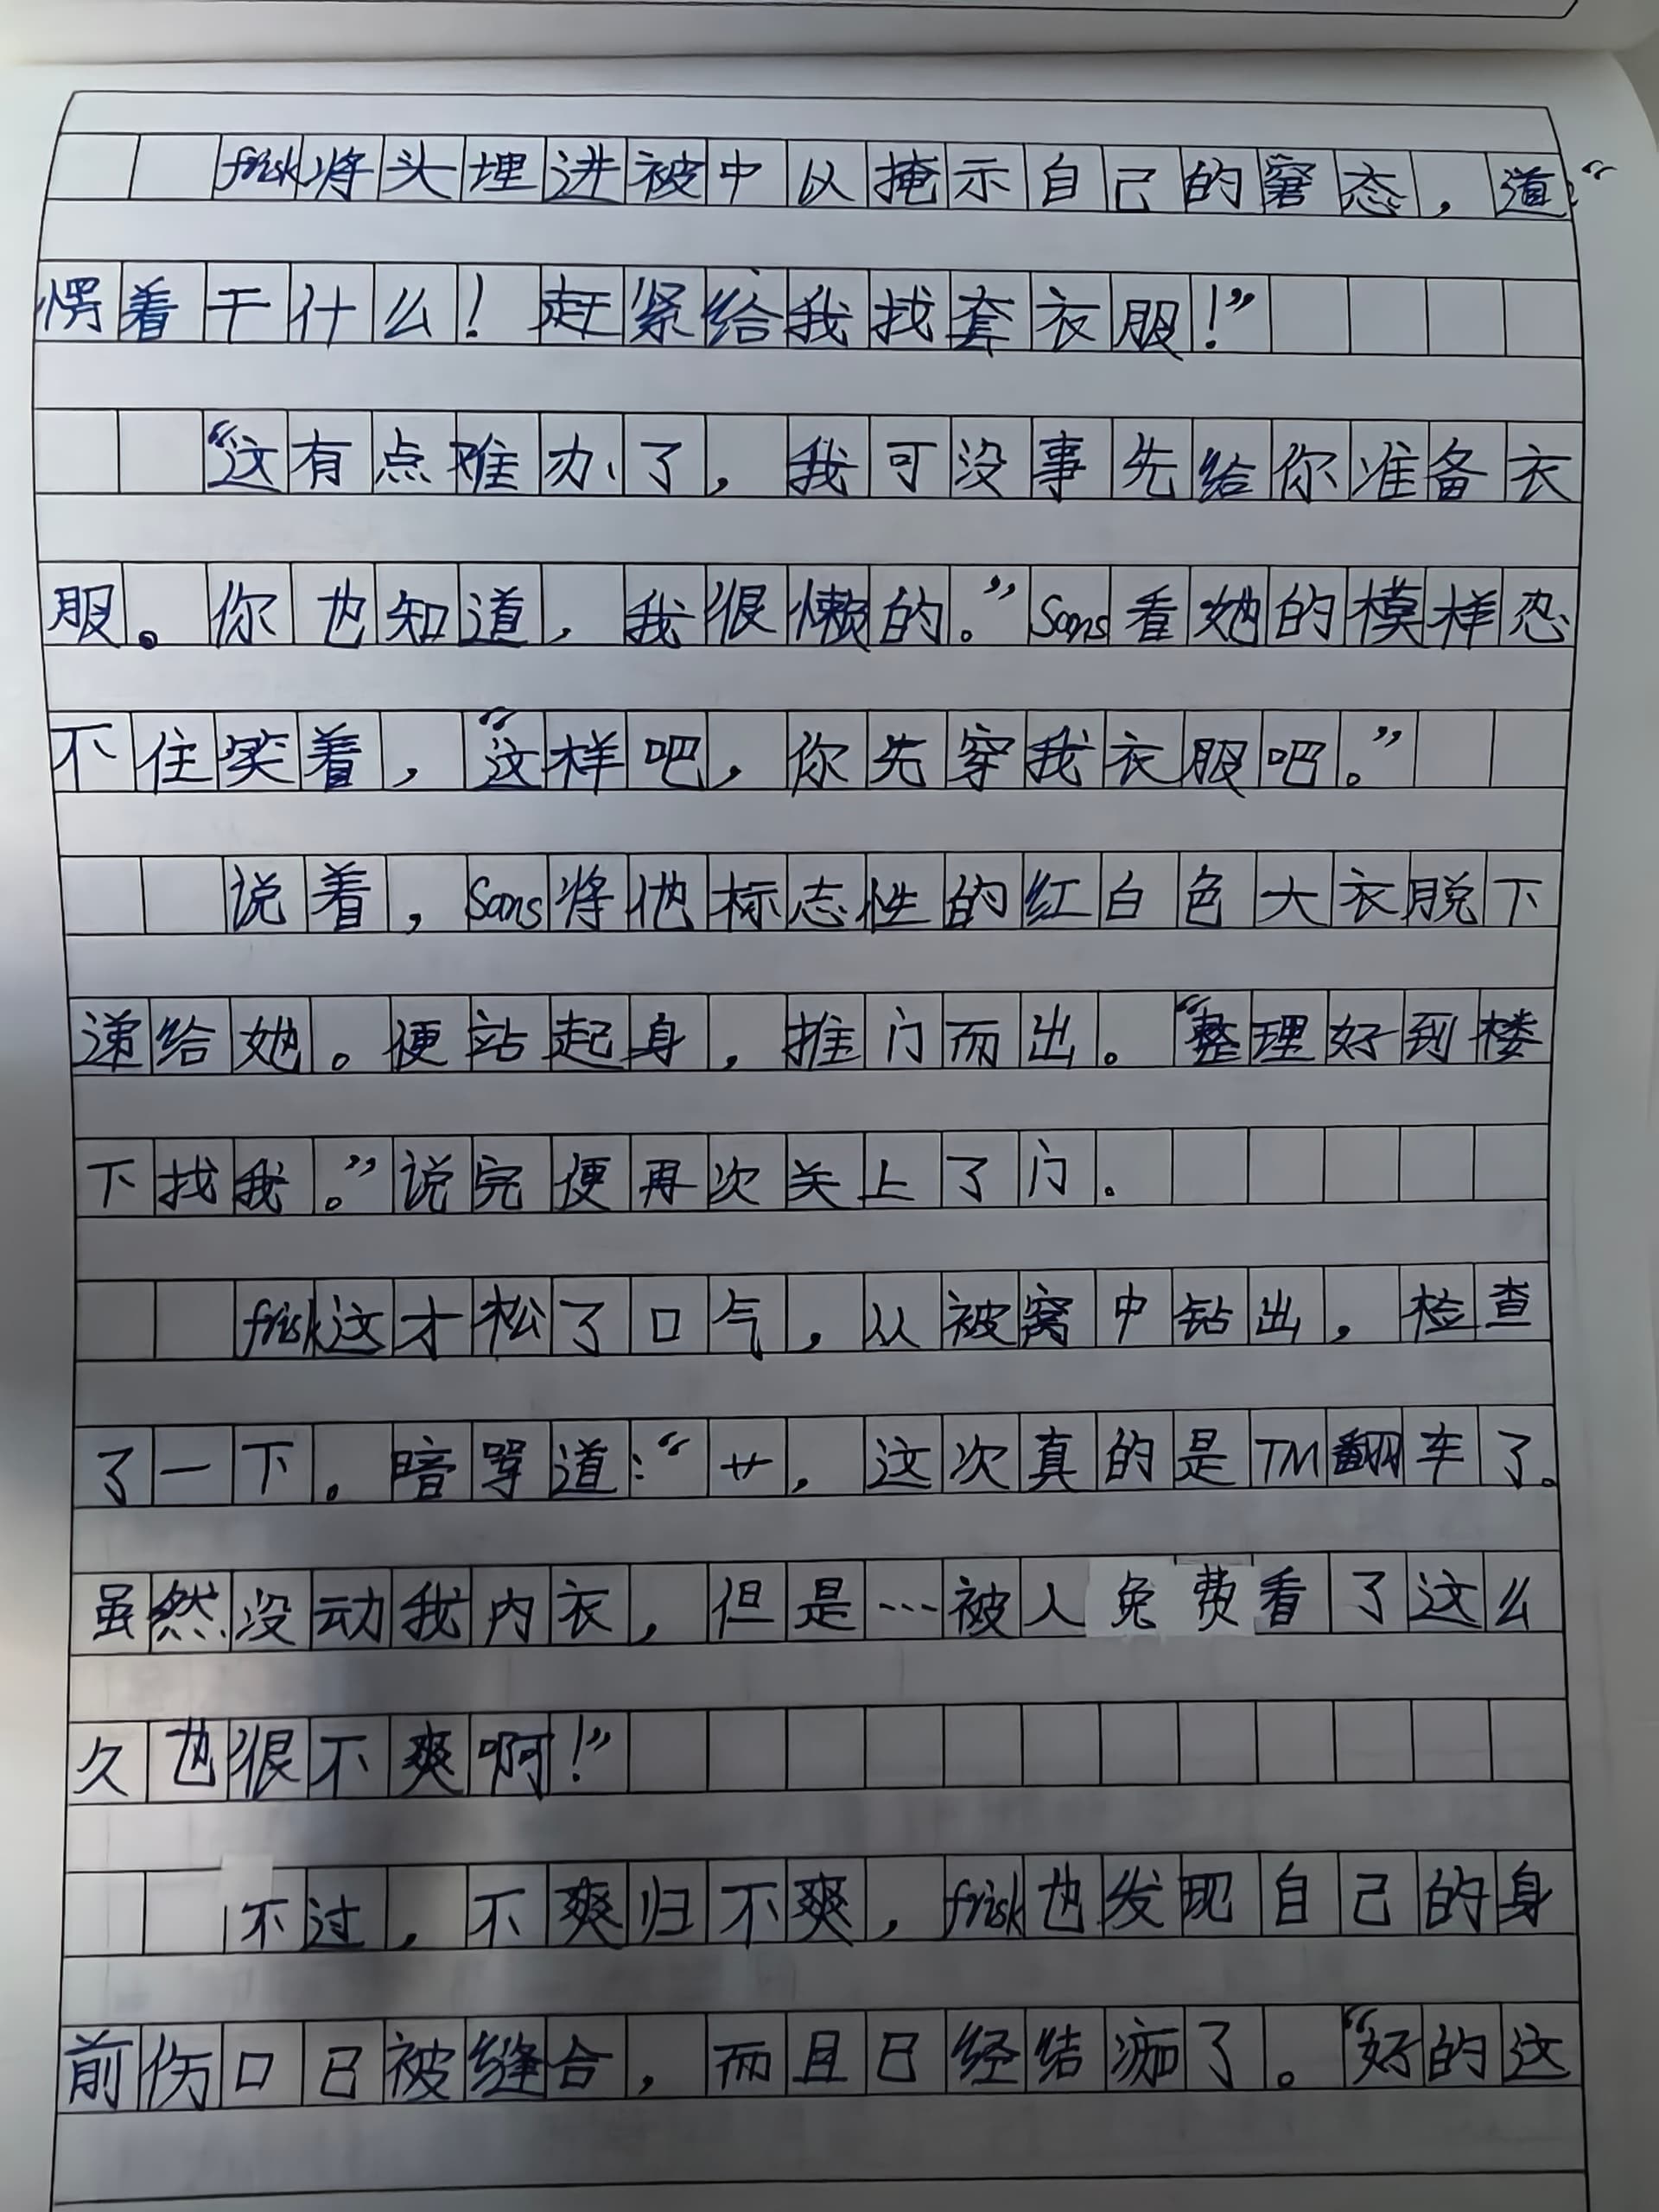 frisk将头埋进被中以掩示自己的窘态，道：“
愣着干什么！赶紧给我找套衣服！”
“这有点难办了，我可没事先给你准备衣
服。你也知道，我很懒的。”Sans看她的模样忍
不住笑着，“这样吧，你先穿我衣服吧。”
说着，Sans将他标志性的红白色大衣脱下
递给她。便站起身，推门而出。“整理好到楼
下找我。”说完便再次关上了门。
frisk这才松了口气，从被窝中钻出，检查
了一下。暗骂道：“艹，这次真的是TM翻车了。
虽然没动我内衣，但是…被人免费看了这么
久也很不爽啊！”
不过，不爽归不爽，frisk也发现自己的身
前伤口已被缝合，而且已经结痂了。“好的这